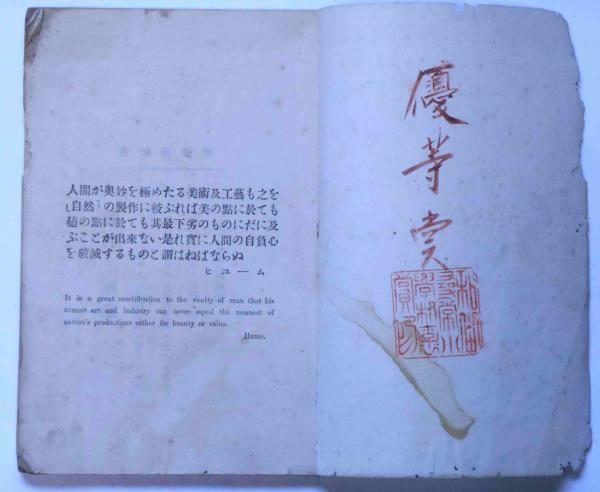 人間が奥妙を極めたる美術及工藝も之を
「自然」の製作に較ぶれば美の點に於ても
値の點に於ても其最下劣のものにだに及
ぶことが出來ない是れ實に人間の自負心
を破滅するものと謂はねばならぬ
ヒユーム
It is a great mortification to the vanity of man that his
utmost art and industry can never equal the meanest of
nature's productions either for beauty or value.
Hume.
優等賞
尋常小